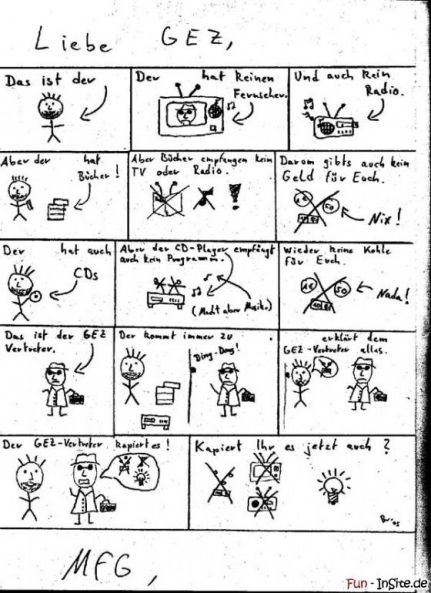 Liebe GEZ,
Das ist der
Der hat keinen
Fernseher.
Und auch kein
Radio.
Aber der hat
Bücher!
Aber Bücher empfangen kein
TV oder Radio.
Darom gibts auch kein
Geld für Euch.
Nix!
Der hat auch
CDs
Aber der CD-Player empfängt
auch kein Programm.
(Macht aber Musik.)
Wieder keine Kohle
für Euch.
Nada!
Das ist der GEZ
Vertreter.
Der kommt immer zu .
Ding-Dong!
erklärt dem
GEZ-Vertreter alles.
Der GEZ-Vertreter kapiert es!
Kapiert Ihr es jetzt auch?
MFG,
Fun-InSite.de